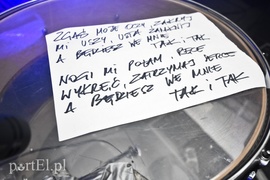 ZGAŚ MOJE OCZY, ZAKRYJ
MI USZY, USTA ZASŁOŃ
A BĘDZIESZ WE MNIE
TAK I TAK
NOGI MI POŁAM, RĘCE
WYKRĘĆ, ZATRZYMAJ SERCE
A BĘDZIESZ WE MNIE
TAK I TAK
portEl.pl